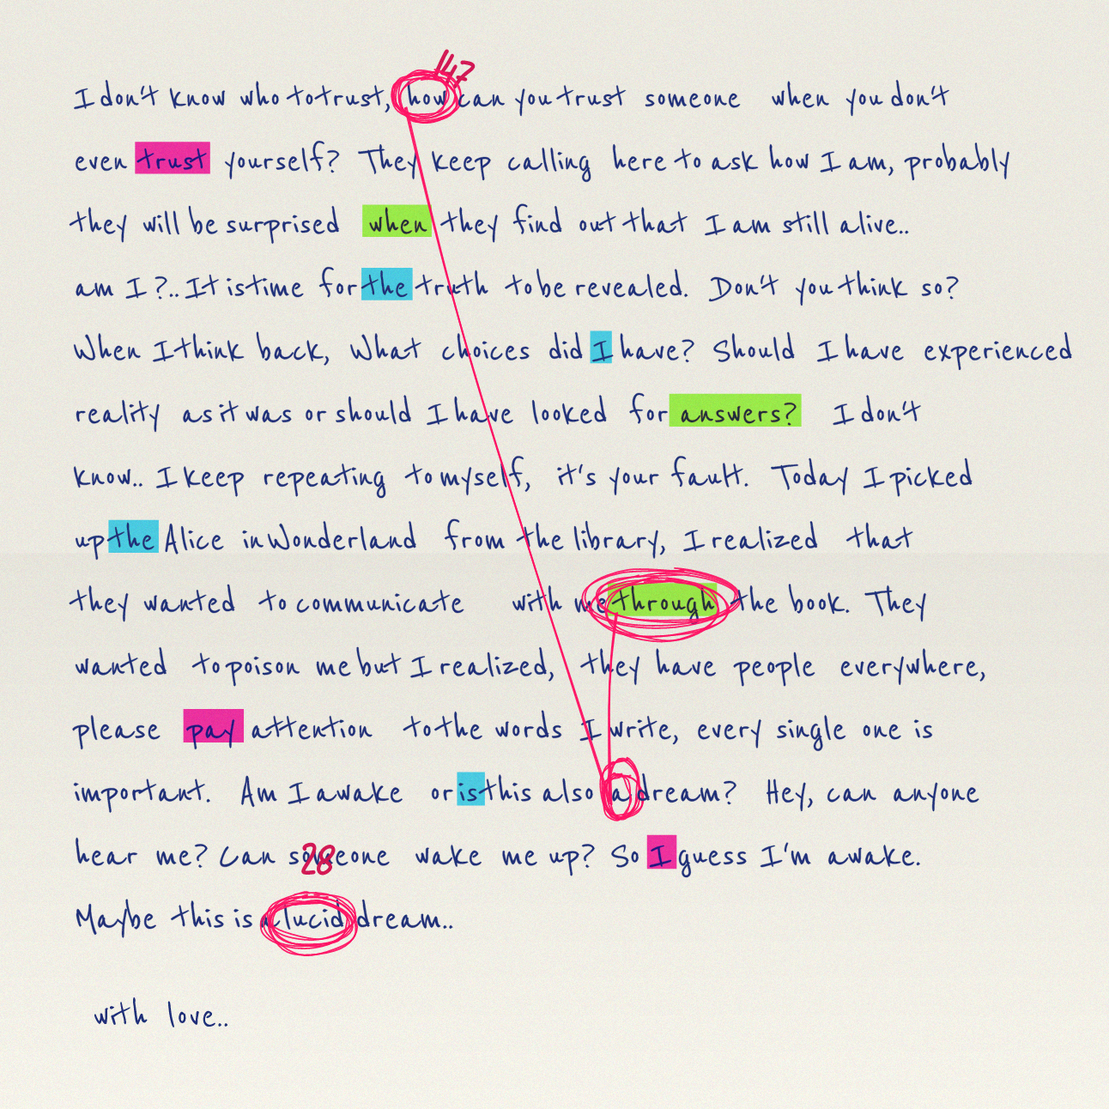 147
I don't know who to trust, how can you trust someone when you don't
even trust yourself? They keep calling here to ask how I am, probably
they will be surprised when they find out that I am still alive..
am I ?.. It is time for the truth to be revealed. Don't you think so?
When I think back, What choices did I have? Should I have experienced
reality as it was or should I have looked for answers? I don't
know.. I keep repeating to myself, it's your fault. Today I picked
up the Alice in Wonderland from the library, I realized that
they wanted to communicate with me through the book. They
wanted to poison me but I realized, they have people everywhere,
please pay attention to the words I write, every single one is
important. Am I awake or is this also a dream? Hey, can anyone
hear me? Can someone wake me up? So I guess I'm awake.
28
Maybe this is a lucid dream..
with love..